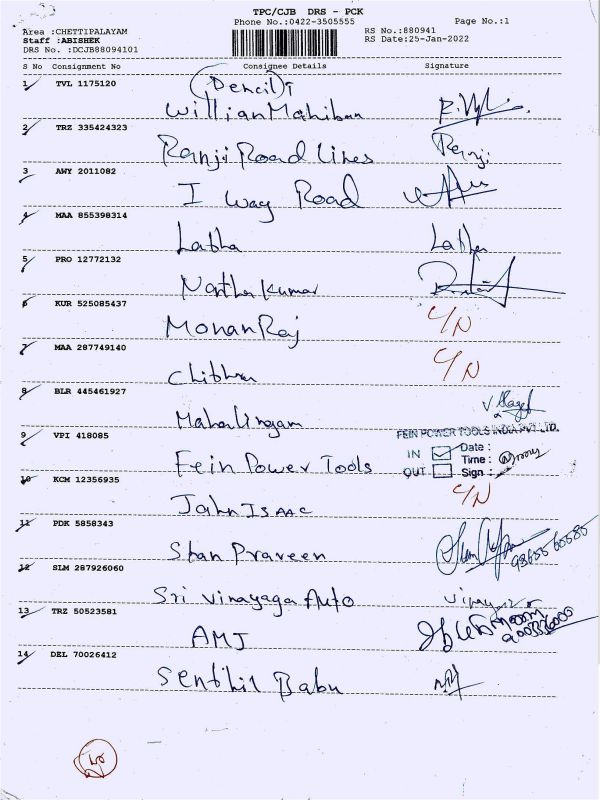 TPC/CJB DRS - PCK
Phone No.:0422-3505555
Page No.:1
Area :CHETTIPALAYAM
RS No.:880941
Staff :ABISHEK
RS Date:25-Jan-2022
DRS No. :DCJB88094101
S No Consignment No Consignee Details Signature
1 TVL 1175120 (Pencil)
Willian Mahiban
2 TRZ 335424323
Ranji Road Lines Ranji
3 AWY 2011082
I way Road
4 MAA 855398314
Latha Latha
5 PRO 12772132
Nantha Kumar
6 KUR 525085437 C/N
Mohan Raj
7 MAA 287749140 C/N
Chithra
8 BLR 445461927
Mahalingam
9 VPI 418085 FEIN POWER TOOLS INDIA PVT. LTD.
IN Date :
Fein Power Tools Time :
OUT Sign :
10 KCM 12356935 C/N
John ISAAC
11 PDK 5858343
Stan Praveen
12 SLM 287926060
Sri Vinayaga Auto
13 TRZ 50523581
AMJ
14 DEL 70026412
Senthil Babu